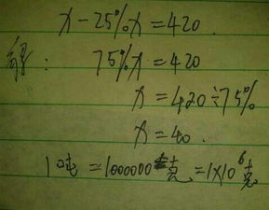 x-25%x=420.
解: 75%x=420
x=420÷75%
x=40.
1吨=1000000克=1×10⁶克